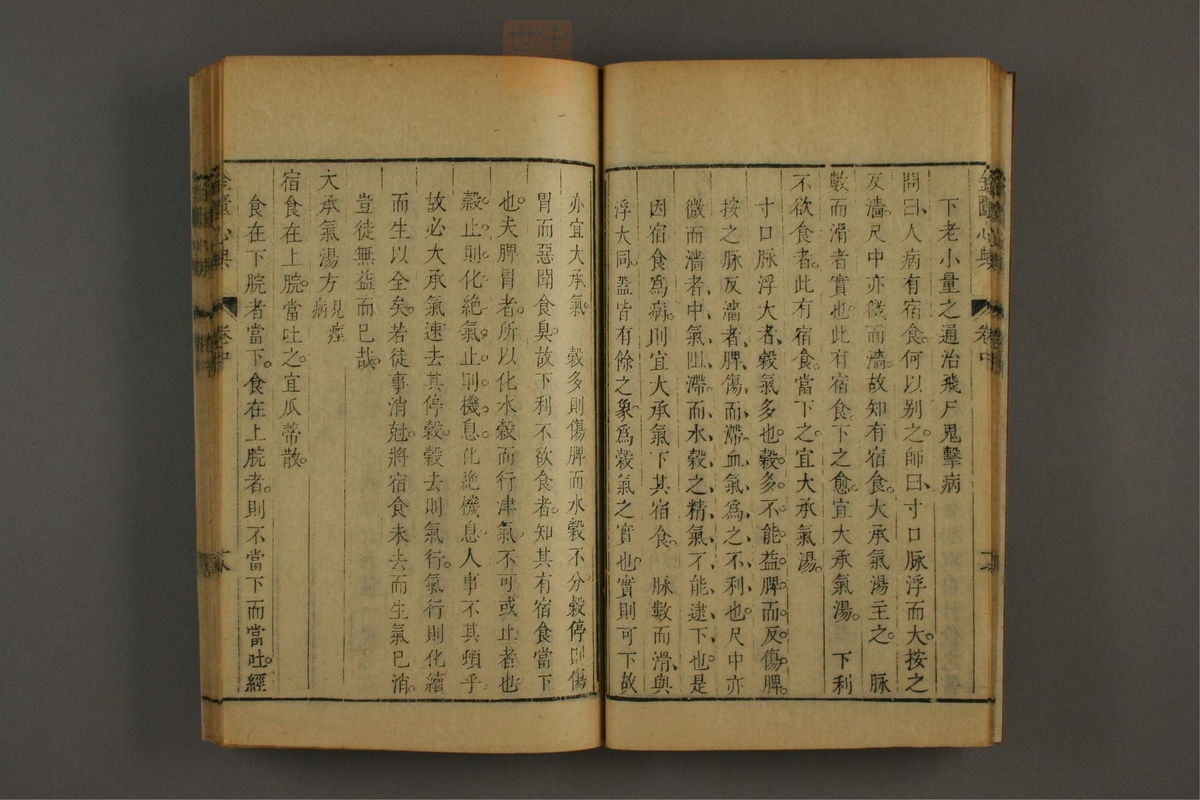 金匱心典
卷中
下老小量之通治飛尸鬼擊病
問曰人病有宿食何以别之師曰寸口脉浮而大按之
反濇尺中亦微而濇故知有宿食大承氣湯主之　脉
數而滑者實也此有宿食下之愈宜大承氣湯　下利
不欲食者此有宿食當下之宜大承氣湯
寸口脉浮大者穀氣多也穀多不能益脾而反傷脾
按之脉反濇者脾傷而滯血氣爲之不利也尺中亦
微而濇者中氣阻滯而水穀之精氣不能逮下也是
因宿食爲病則宜大承氣下其宿食　脉數而滑與
浮大同蓋皆有餘之象爲穀氣之實也實則可下故
亦宜大承氣　穀多則傷脾而水穀不分穀停則傷
胃而惡聞食臭故下利不欲食者知其有宿食當下
也夫脾胃者所以化水穀而行津氣不可或止者也
穀止則化絶氣止則機息化絶機息人事不其頓乎
故必大承氣速去其停穀穀去則氣行氣行則化續
而生以全矣若徒事消尅將宿食未去而生氣已消
豈徒無益而已哉
大承氣湯方見痙病
宿食在上脘當吐之宜瓜蒂散
食在下脘者當下食在上脘者則不當下而當吐經
金匱心典
卷中